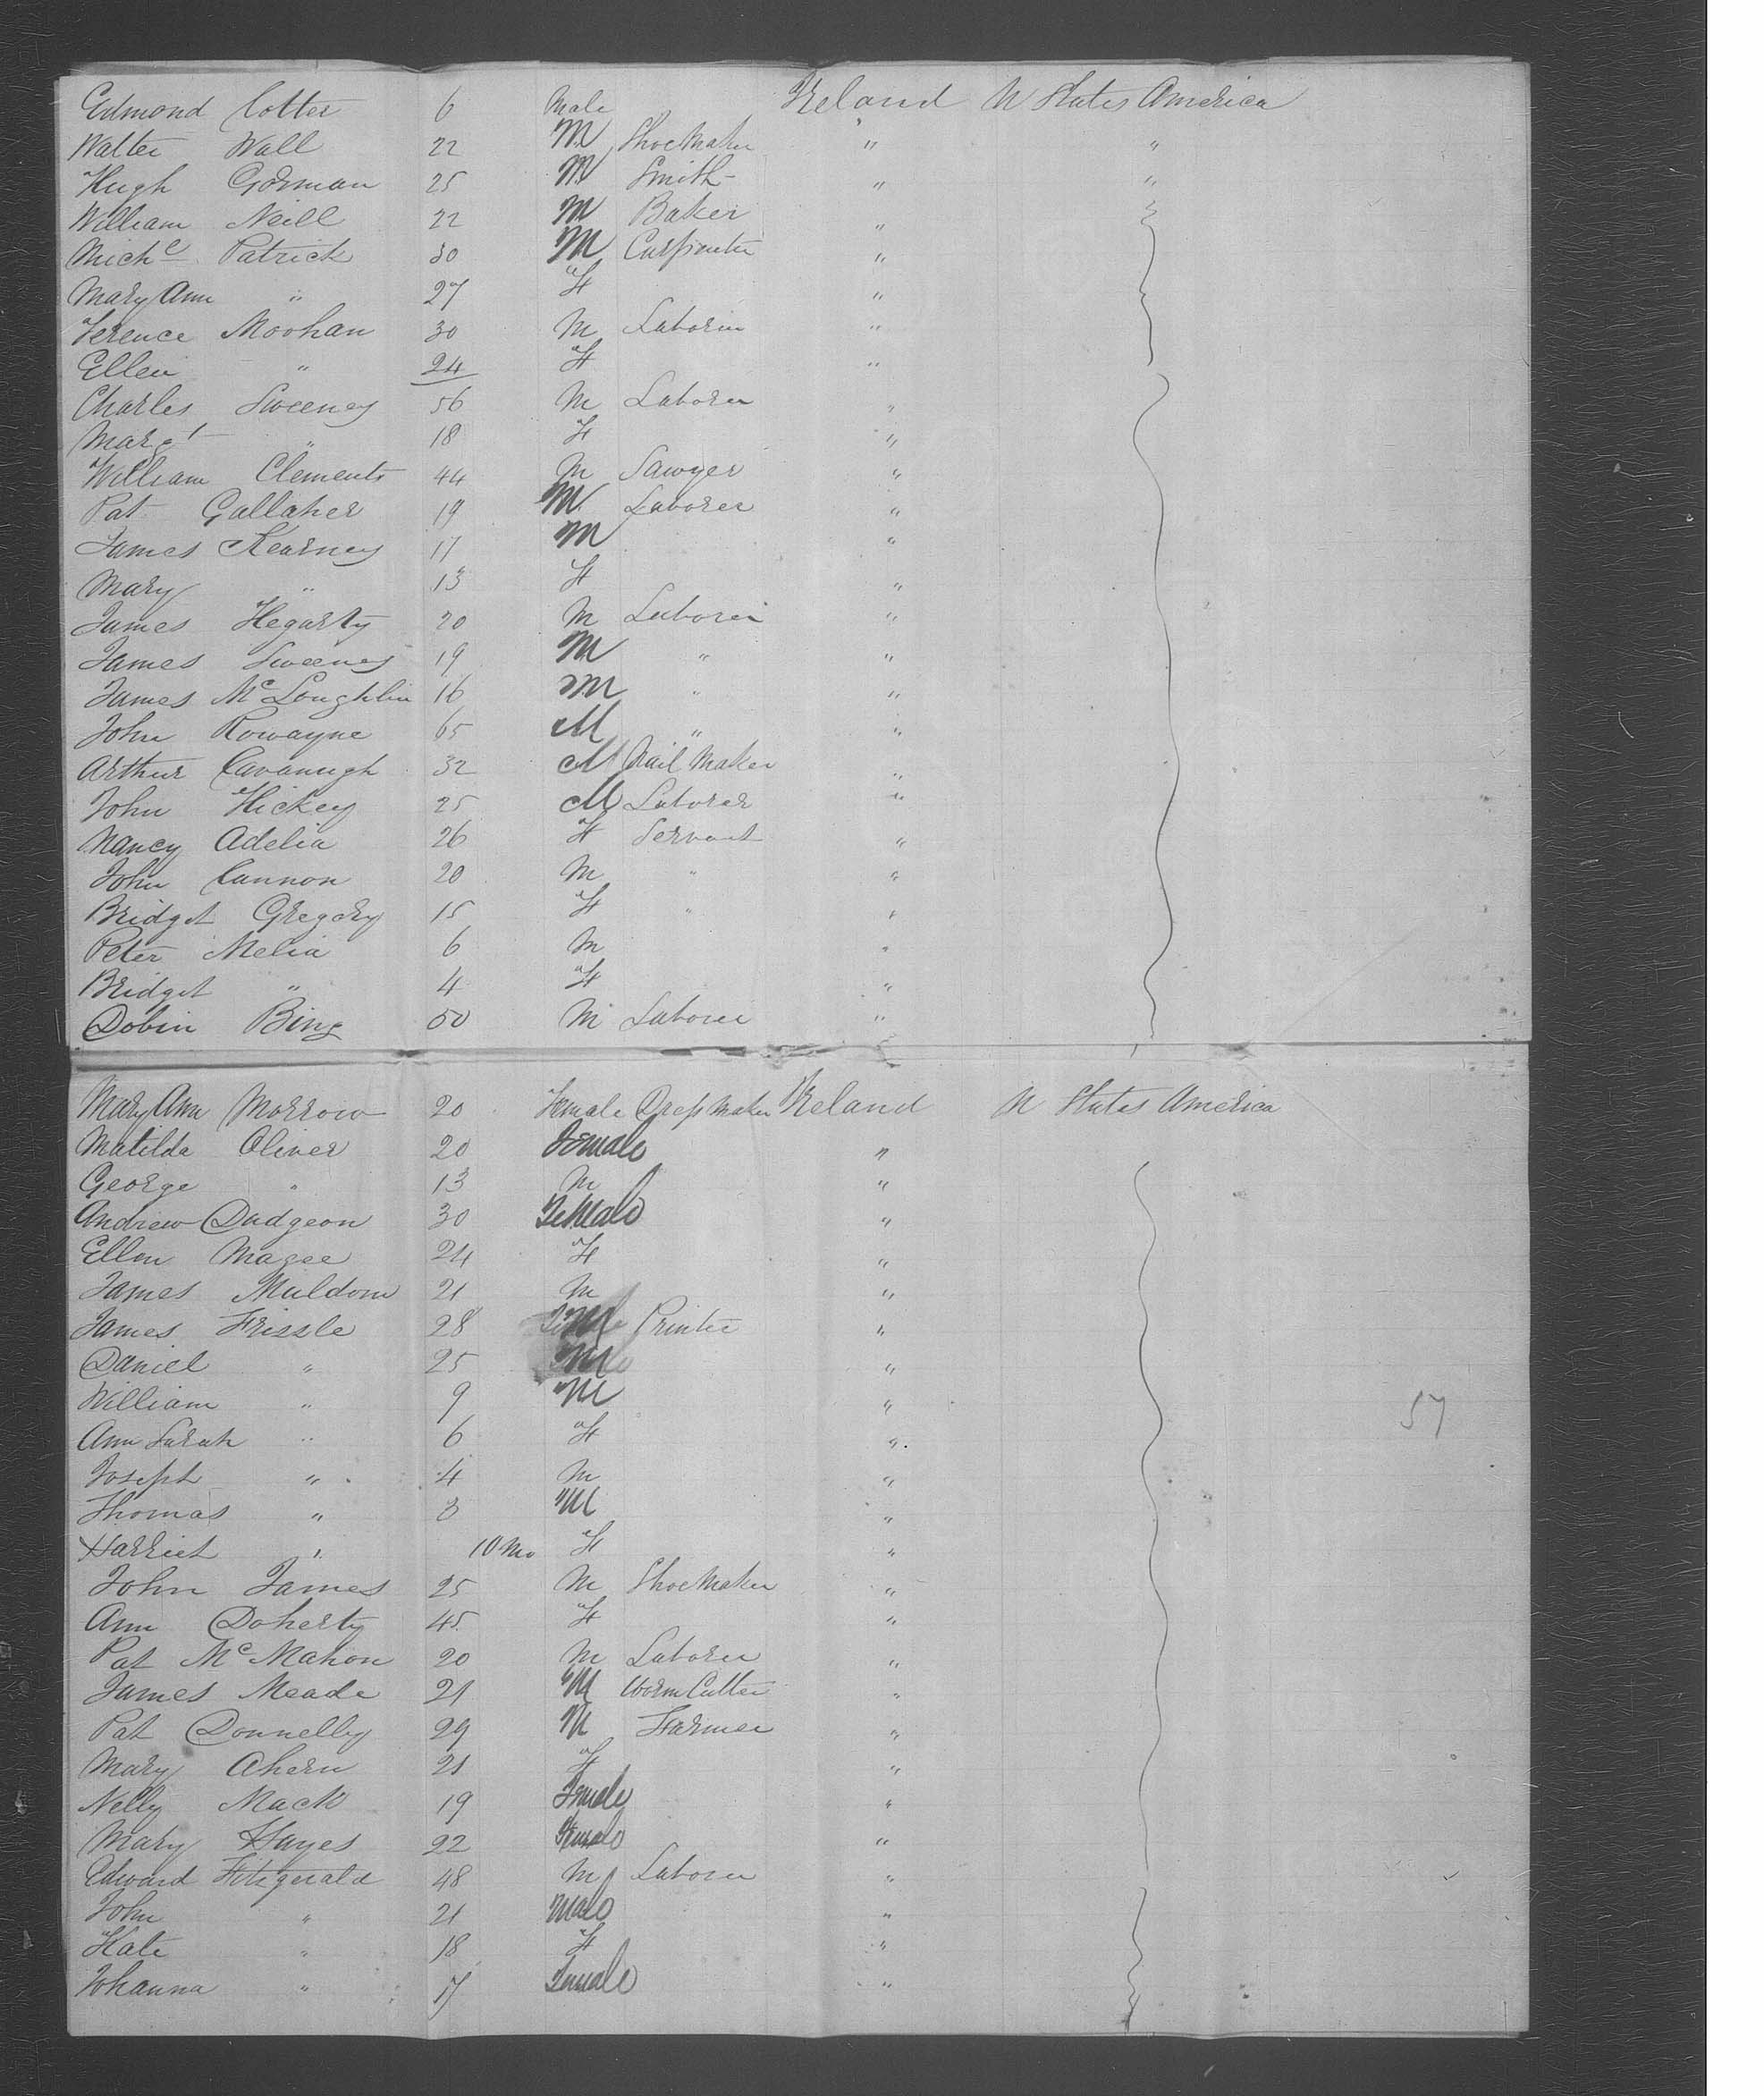 Edmond Cotter 6 Male Ireland U States America
Walter Wall 22 M Shoe Maker " "
Hugh Gorman 25 M Smith " "
William Neill 22 M Baker "
Michl Patrick 30 M Carpenter "
Mary Ann " 27 F "
Terence Moohan 30 M Laborer "
Ellen " 24 F "
Charles Sweeney 56 M Laborer "
Margt " 18 F "
William Clements 44 M Sawyer "
Pat Gallaher 19 M Laborer "
James Kearney 17 M "
Mary " 13 F "
James Hegarty 20 M Laborer "
James Sweeney 19 M " "
James McLoughlin 16 M " "
John Rowayne 65 M " "
Arthur Cavanugh 32 M Nail Maker "
John Hickey 25 M Laborer "
Nancy Adelia 26 F Servant "
John Cannon 20 M " "
Bridget Gregory 15 F " "
Peter Melia 6 M "
Bridget " 4 F "
Dobin Bing 50 M Laborer "
Mary Ann Morrow 20 Female Dress Maker Ireland U States America
Matilda Oliver 20 Female "
George " 13 M "
Andrew Dudgeon 30 Female "
Ellen Magee 24 F "
James Muldom 21 M "
James Frizzle 28 M Printer "
Daniel " 25 M "
William " 9 M "
Ann Sarah " 6 F "
Joseph " 4 M "
Thomas " 3 M "
Harriet " 10 Mo F "
John James 25 M Shoe Maker "
Ann Doherty 45 F "
Pat McMahon 20 M Laborer "
James Meade 21 M Cutter "
Pat Donnelly 29 M Farmer "
Mary Ahern 21 F "
Nelly Mack 19 Female "
Mary Hayes 22 Female "
Edward Fitzgerald 48 M Laborer "
John " 21 Male "
Kate " 18 F "
Johanna " 17 Female "
57